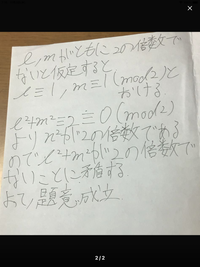 l, mがともに2の倍数で
ないと仮定すると
l≡1, m≡1 (mod2)と
かける
l²+m²≡2≡0 (mod2)
よりn²が2の倍数である
のでl²+m²が2の倍数で
ないことに矛盾する
よて、題意は成立
2/2